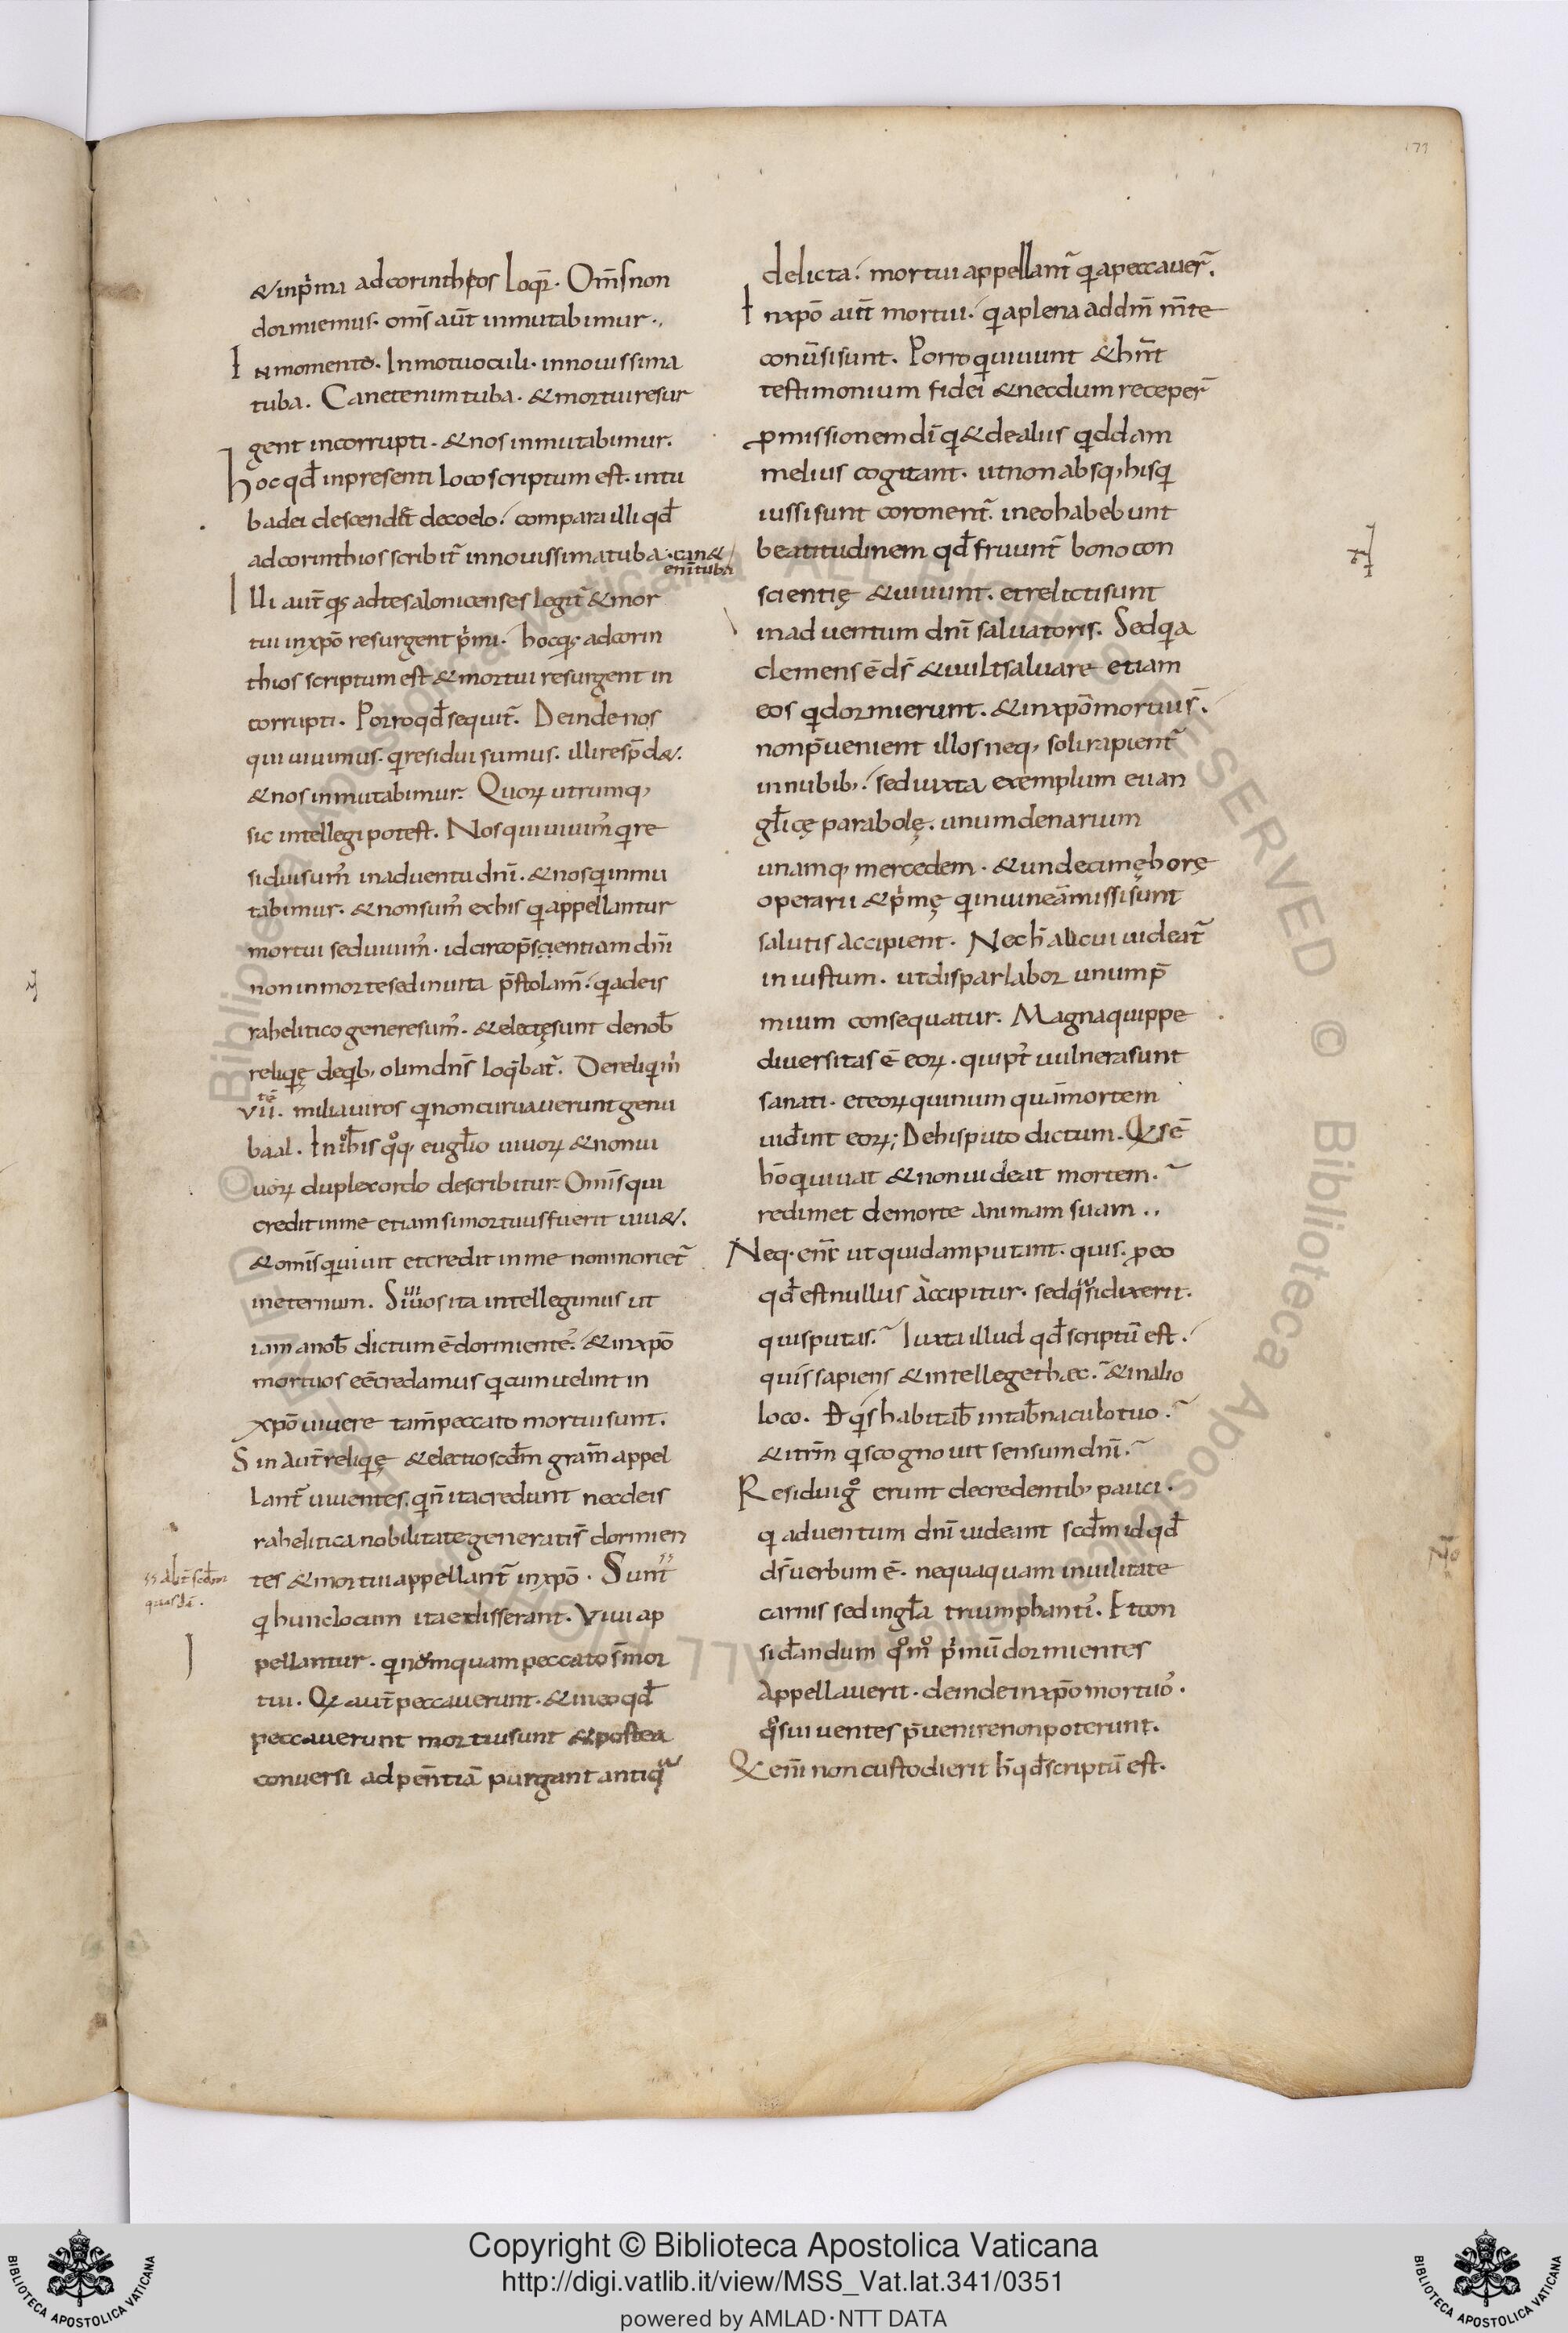 173
&inp̄ma adcorinthios loqr̄. Om̄s non
dormiemus. om̄s aūt inmutabimur.,
In momento. Inmotuoculi. innouissima
tuba. Canetenim tuba. &mortuiresur
gent incorrupti. &nos inmutabimur.
hoc qđ inpresenti loco scriptum est. intu
badei descendēt decoelo. compara illi qđ
adcorinthios scribit̄ innouissimatuba. can&
enī tuba
Illi aūt qꝫ adtesalonicenses legit̄ &mor
tui inxp̄o resurgent p̄mi. hocqꝫ adcorin
thios scriptum est &mortui resurgent in
corrupti. Porroqđ sequit̄. Deinde nos
qui uiuimus. qi residui sumus. illi resp̄d&.
&nos inmutabimur. Quoꝝ utrumq,
sic intellegi potest. Nos qui uiuim᾽ qi re
siduisum᾽ inaduentu dnī. &nosqi inmu
tabimur. &nonsum᾽ exhis qi appellantur
mortui seduiuim᾽. idcircop̄scientiam dnī
non inmorte sed inuita p̄stolam̄. qiadeis
rahelitico generesum᾽. &electęsunt denob̄
reliqię deqib, olimdn̄s loqb̄at̄. Dereliqim᾽
VII. milia uiros qinoncuruauerunt genu
baal. In uerbis qoq, eugl̄io uiuoꝝ &nonui
uoꝝ duplex ordo describitur. Omīs qui
credit inme etiam simortuus fuerit uiu&.
&omīs qiuiuit et credit in me non moriet̄
ineternum. Si uiuos ita intellegimus ut
iam anob̄ dictum ē dormientē. &inxp̄o
mortuos eē credamus qicum uelint in
xp̄o uiuere tam̄ peccato mortui sunt.
Sin aūt reliqię &electio scđm gram̄ appel
lant̄ uiuentes. qin̄ ita credunt necdeis
rahelitica nobilitate generatis̄ dormien
tes &mortui appellant̄ inxp̄o. Sunt̄
ss
ss
quosdā.
qi hunclocum ita exdisserant. Viui ap
pellantur. qi numquam peccato s̄ mor
tui. Qi aūt peccauerunt. &ineo qđ
peccauerunt mortuisunt &postea
conuersi ad pen̄tiā purgant antiqua
delicta. mortui appellant̄ qia peccauer̄.
Inxp̄o aūt mortui. qia plena addm̄ m̄te
conūsisunt. Porro qi uiuunt &hn̄t
testimonium fidei &necdum receper̄
ꝓmissionem dī qi&dealiis qiddam
melius cogitant. utnon absq, hisqi
iussi sunt coronent̄. ineo habebunt
beatitudinem qđ fruunt̄ bono con
scientię &uiuunt. et relicti sunt
inad uentum dnī saluatoris. Sedqia
clemens ē ds̄ &uult saluare etiam
eos qidormierunt. &inxp̄o mortuis̄.
nonp̄uenient illos neq, soli rapient̄
innubib,. sed iuxta exemplum euan
gl̄icę parabolę. unum denarium
unamq, mercedem. &undecimę horę
operarii &p̄mę qi inuineā missi sunt
salutis accipient. Nec h̄ alicui uideat̄
in iustum. ut dispar labor unum p̄
mium consequatur. Magna quippe
diuersitas ē eoꝝ. qui pt̄ uulnera sunt
sanati. et eoꝝ qui num quā mortem
uiđint eoꝝ; Dehis puto dictum. Qis ē
hō qi uiuat &non uideat mortem.
redimet demorte animam suam..
Neq. enī ut quidam putant. quis. ꝓ eo
qđ est nullus accipitur. sedqiasi dixerit.
quis putas. Iuxta illud qđ scriptū est.
quis sapiens &intelleget hæc. &inalio
loco. Dn̄e qis habitab̄ intab̄naculo tuo.
&itrm̄ qis cognouit sensum dnī.
Residui g° erunt decredentib, pauci.
qi aduentum dnī uideant scđm id qđ
ds̄ uerbum ē. nequaquam in uilitate
carnis sed ingl̄a triumphantis᾽. Et con
siđandum q°m° p̄mū dormientes
appellauerit. deinde inxp̄o mortuo᾽.
q°suiuentes p̄uenire non poterunt.
Qi enī non custodierit h̄ qđ scriptū est.
Copyright © Biblioteca Apostolica Vaticana
http://digi.vatlib.it/view/MSS_Vat.lat.341/0351
powered by AMLAD·NTT DATA
BIBLIOTECA APOSTOLICA VATICANA
BIBLIOTECA APOSTOLICA VATICANA